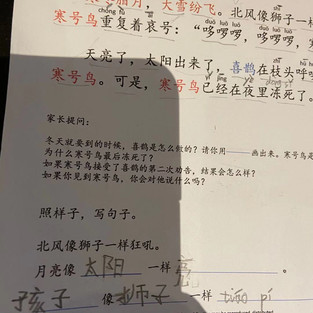 寒腊月，大雪纷飞。北风像狮子一样
chóng fù duō luō luō duō luō luō
寒号鸟重复着哀号：“哆啰啰，哆啰啰，寒
天亮了，太阳出来了，喜鹊在枝头呼
jīng yè dòng sǐ
寒号鸟。可是，寒号鸟已经在夜里冻死了。
家长提问：
冬天就要到的时候，喜鹊是怎么做的？请你用____画出来。寒号鸟是
为什么寒号鸟最后冻死了？
如果寒号鸟接受了喜鹊的第二次劝告，结果会怎么样？
如果你见到寒号鸟，你会对他说什么吗？
照样子，写句子。
北风像狮子一样狂吼。
月亮像太阳一样亮。
孩子像狮子一样tiáo pí